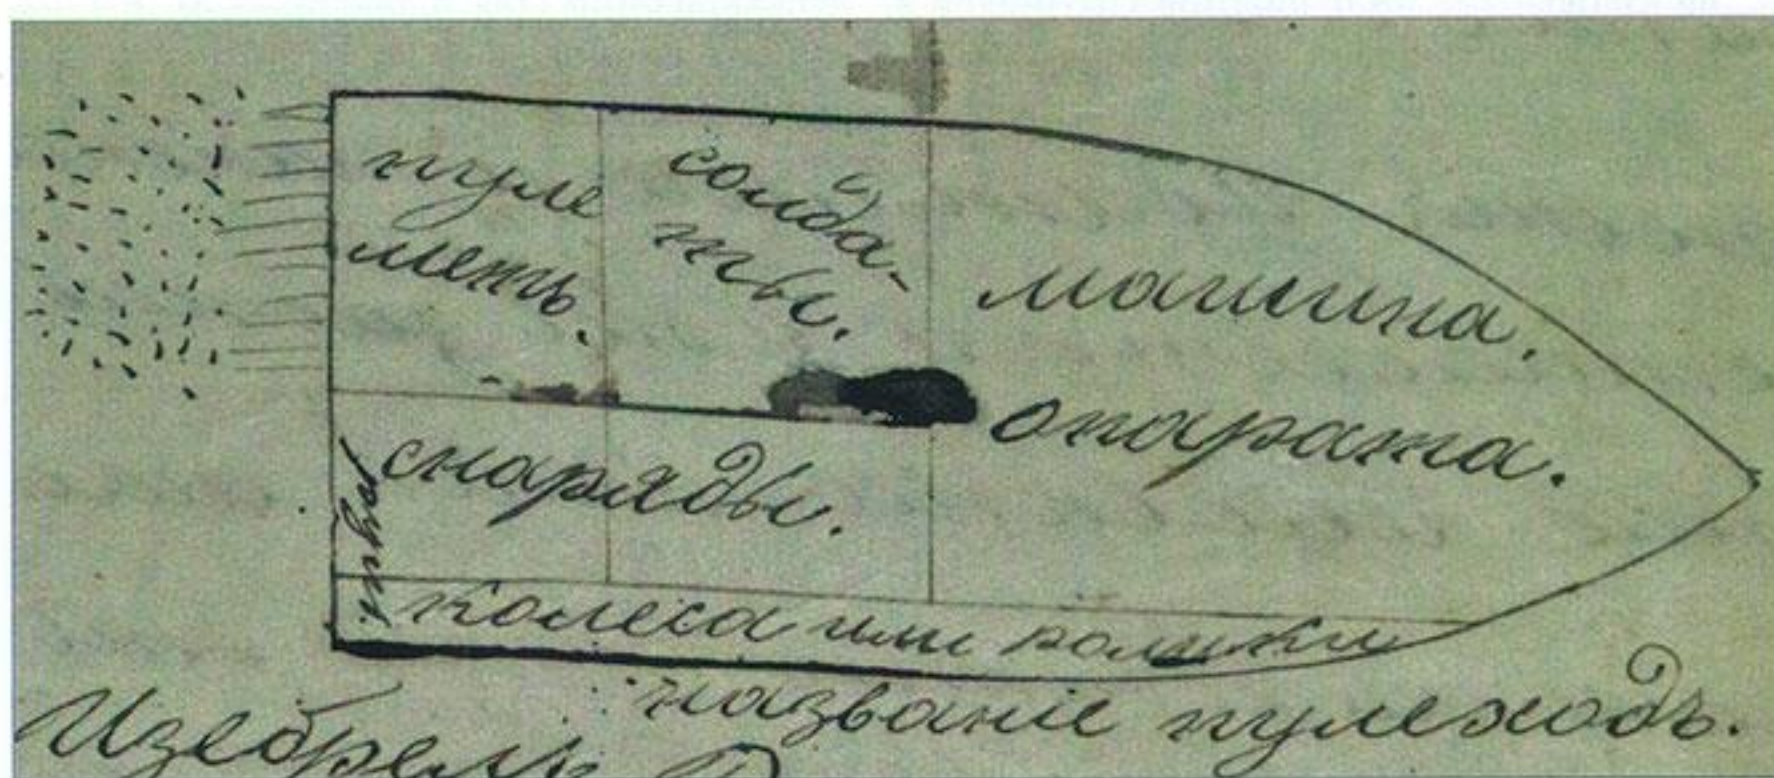 пуле
метъ.
солда-
ты.
машина.
опарата.
снаряды.
колеса или ролики
названіе пулеходъ.